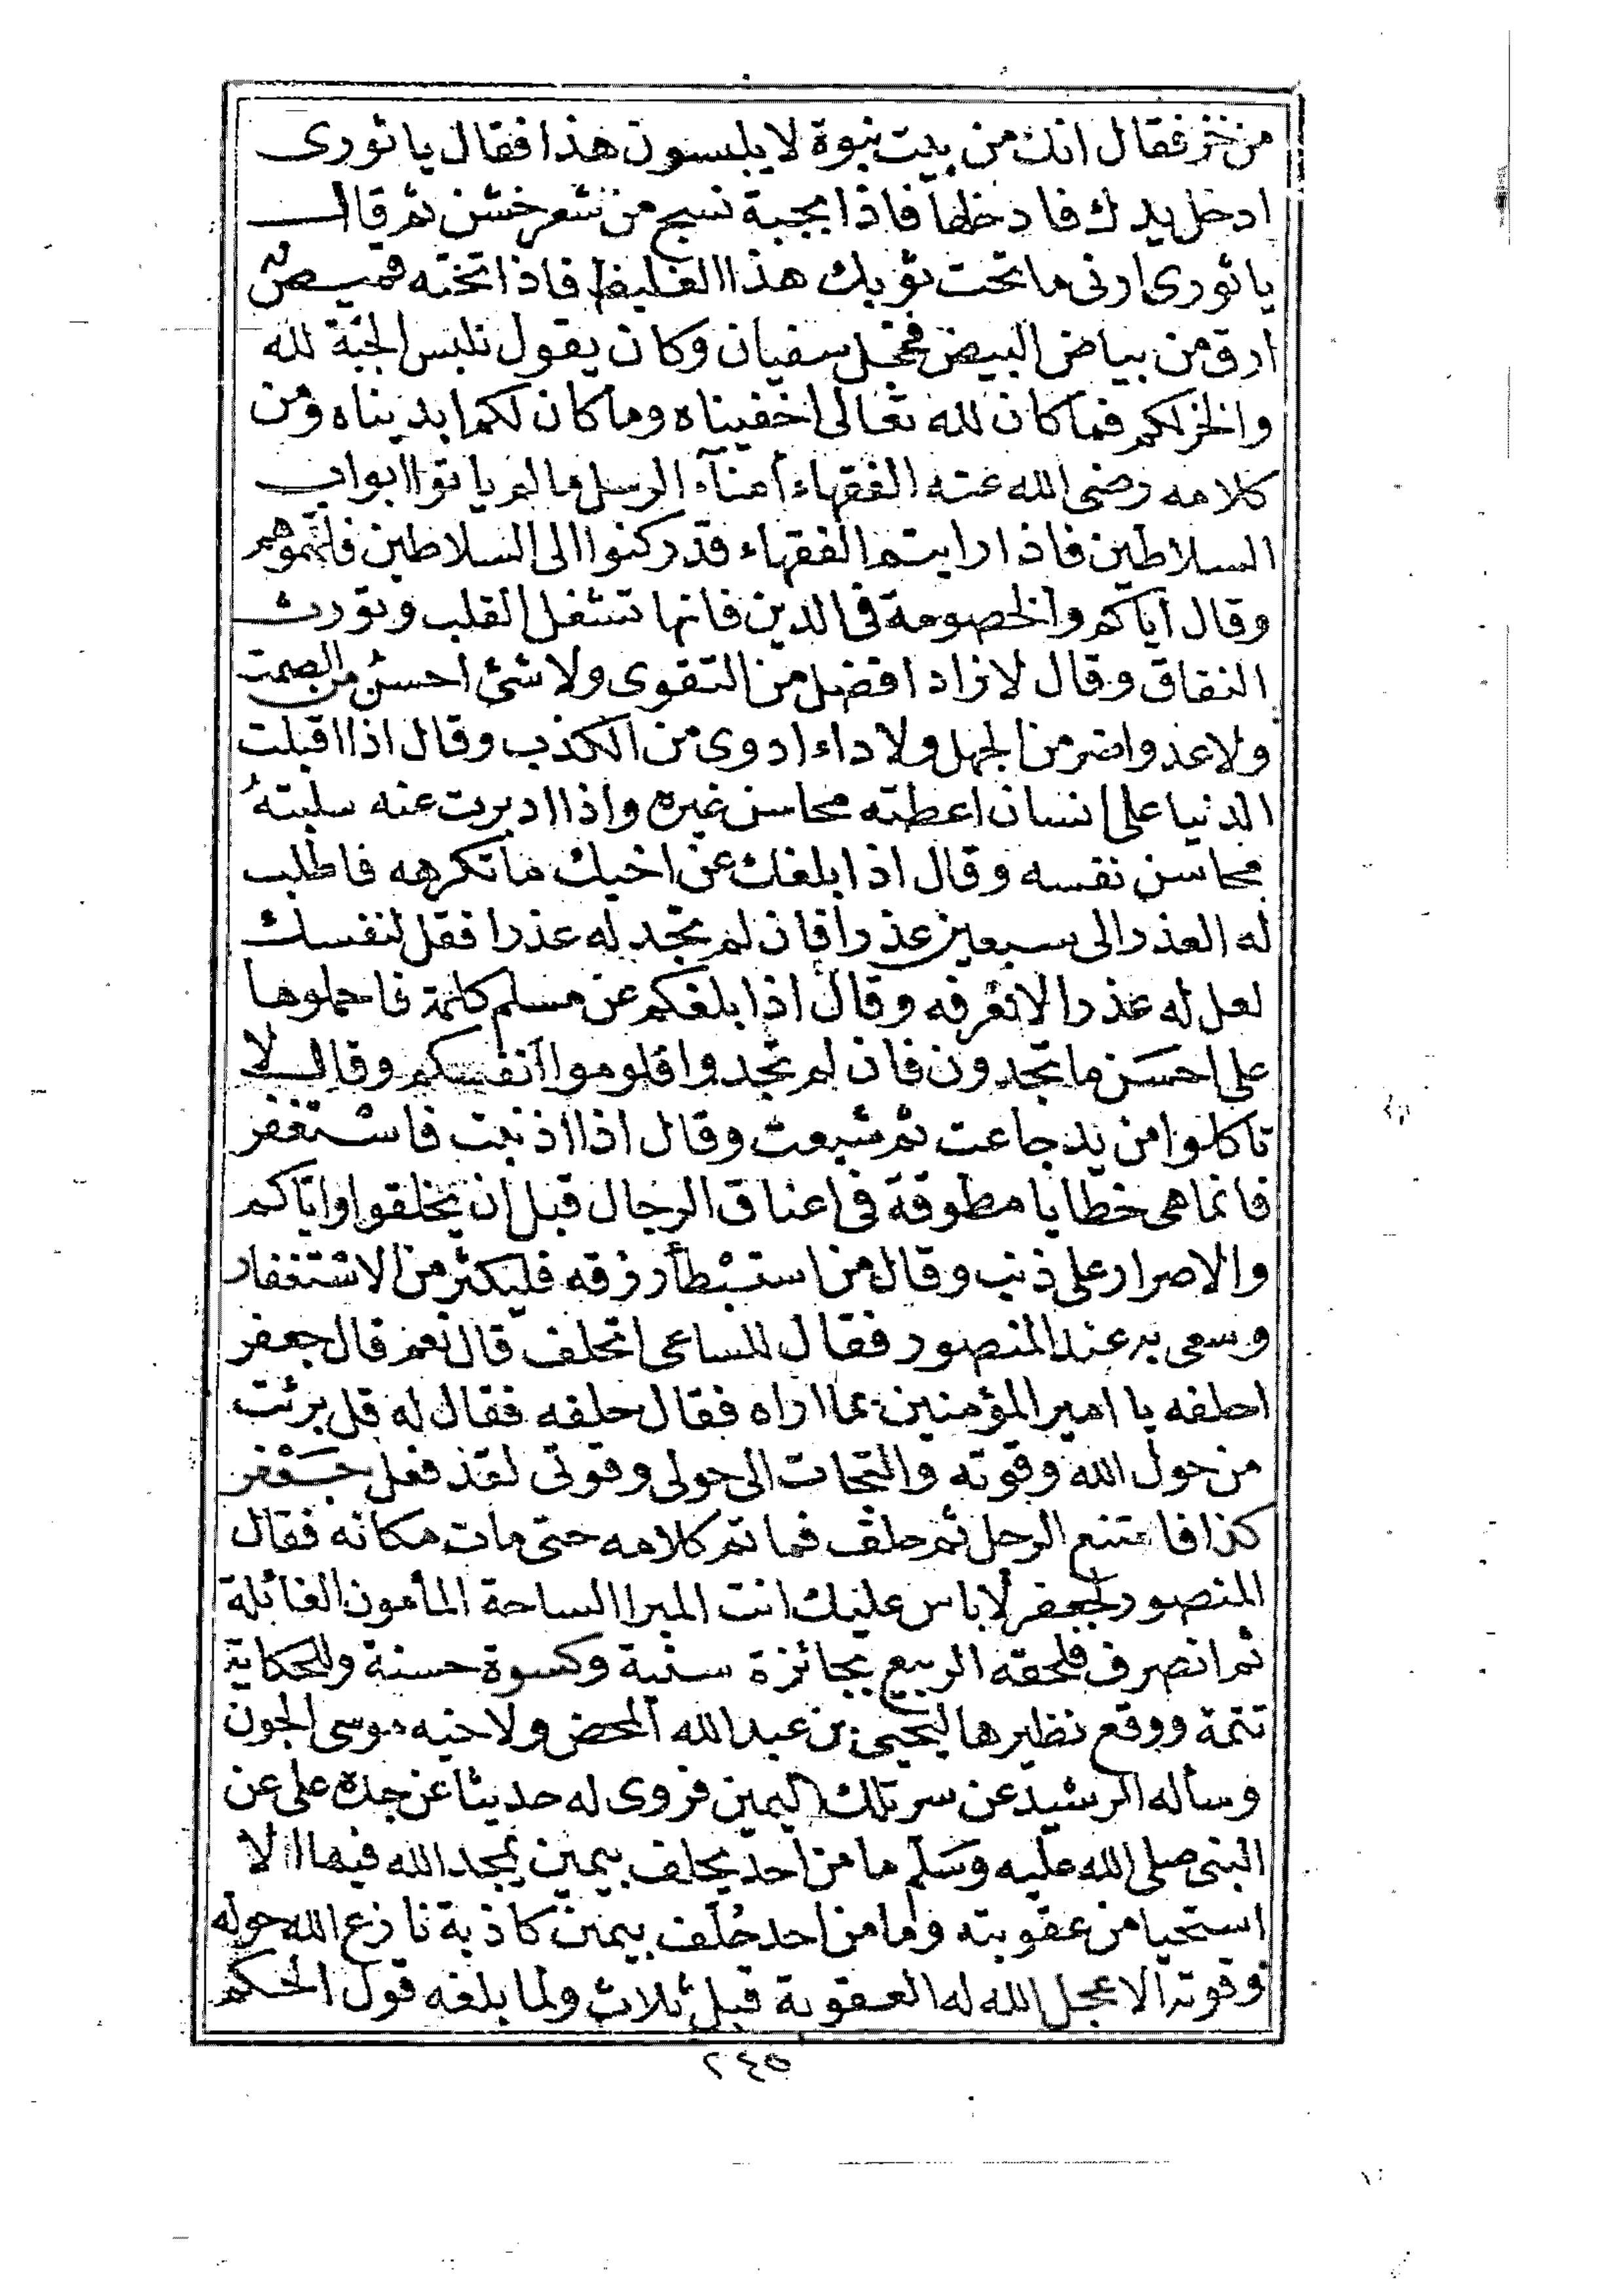 من خز فقال انك من بيت نبوة لا يلبسون هذا فقال يا ثورى
ادخل يدك فادخلها فاذا بجبة نسج من شعر خشن ثم قال
يا ثورى ارنى ما تحت ثوبك هذا الغليظ فاذا تحته قميص
ارق من بياض البيض فخجل سفيان وكان يقول نلبس الجبة لله
والخز لكم فما كان لله تعالى اخفيناه وما كان لكم ابديناه ومن
كلامه رضى الله عنه الفقهاء امناء الرسل ما لم ياتوا ابواب
السلاطين فاذا رايتم الفقهاء قد ركنوا الى السلاطين فاتهموهم
وقال اياكم والخصومة فى الدين فانها تشغل القلب وتورث
النفاق وقال لا زاد افضل من التقوى ولا شئ احسن من الصمت
ولا عدو اضر من الجهل ولا داء ادوى من الكذب وقال اذا اقبلت
الدنيا على انسان اعطته محاسن غيره واذا ادبرت عنه سلبتهُ
محاسن نفسه وقال اذا بلغك عن اخيك ما تكرهه فاطلب
له العذر الى سبعين عذرا فان لم تجد له عذرا فقل لنفسك
لعل له عذرا لا نعرفه وقال اذا بلغكم عن مسلم كلمة فاحملوها
على احسن ما تجدون فان لم تجدوا فلوموا انفسكم وقال لا
تاكلوا من يد جاعت ثم شبعت وقال اذا اذنبت فاستغفر
فانما هى خطايا مطوقة فى اعناق الرجال قبل ان يخلقوا واياكم
والاصرار على ذنب وقال من استبطأ رزقه فليكثر من الاستغفار
وسعى به عند المنصور فقال للساعى اتحلف قال نعم قال جعفر
احلفه يا امير المؤمنين بما اراه فقال حلفه فقال له قل برئت
من حول الله وقوته والتجات الى حولى وقوتى لقد فعل جعفر
كذا فامتنع الرجل ثم حلف فما تم كلامه حتى مات مكانه فقال
المنصور لجعفر لا باس عليك انت المبرا الساحة المأمون الغائلة
ثم انصرف فلحقه الربيع بجائزة سنية وكسوة حسنة وللحكاية
تتمة ووقع نظيرها ليحيى بن عبد الله المحض ولاخيه موسى الجون
وسأله الرشيد عن سر تلك اليمين فروى له حديثا عن جده على عن
النبى صلى الله عليه وسلم ما من احد يحلف بيمين يمجد الله فيها الا
استحيا من عقوبته وما من احد حُلف بيمين كاذبة نازع الله حوله
وقوته الا عجل الله له العقوبة قبل ثلاث ولما بلغه قول الحكم
٢٤٥